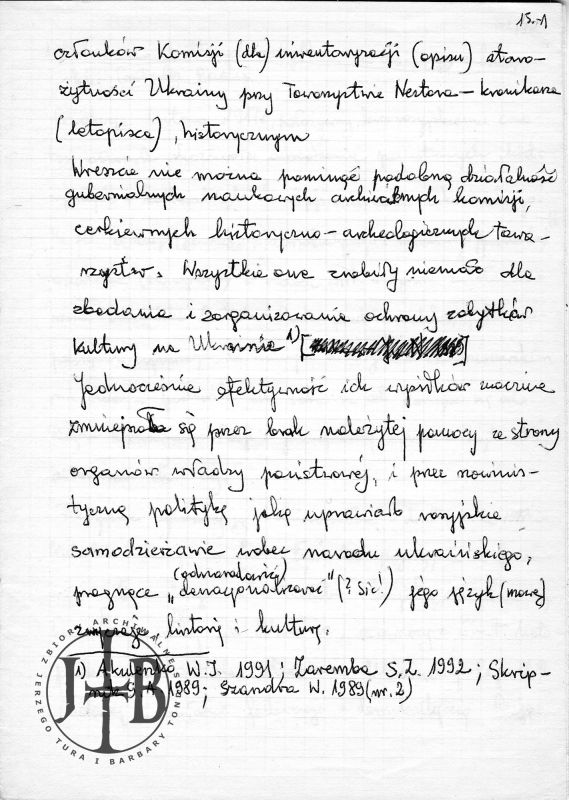 15.-1
członków Komisji (dla) inwentaryzacji (opisu) staro-
żytności Ukrainy przy Towarzystwie Nestora – kronikarza
(letopisca), historycznym
Wreszcie nie można pominąć podobną działalność
gubernialnych naukowych archiwalnych komisji,
cerkiewnych historyczno – archeologicznych towa-
rzystw. Wszystkie one zrobiły niemało dla
zbadania i zorganizowania ochrony zabytków
kultury na Ukrainie 1)
Jednocześnie efektywność ich wysiłków znacznie
zmniejszała się przez brak należytej pomocy ze strony
organów władzy państwowej, i przez szowinis-
tyczną politykę jaką uprawiało rosyjskie
samodzierżawie wobec narodu ukraińskiego,
pragnące „denacjonalizować" (? Sic!) jego język (mowę)
(odnarodowić)
zwyczaje, historię i kulturę.
1) Akulenko W.I. 1991; Zaremba S.Z. 1992; Skrip-
nik 1989; Szandra W. 1989 (nr. 2)
ZBIORY ARCHIWALNE
JERZEGO TURA I BARBARY TONDOS
JTB